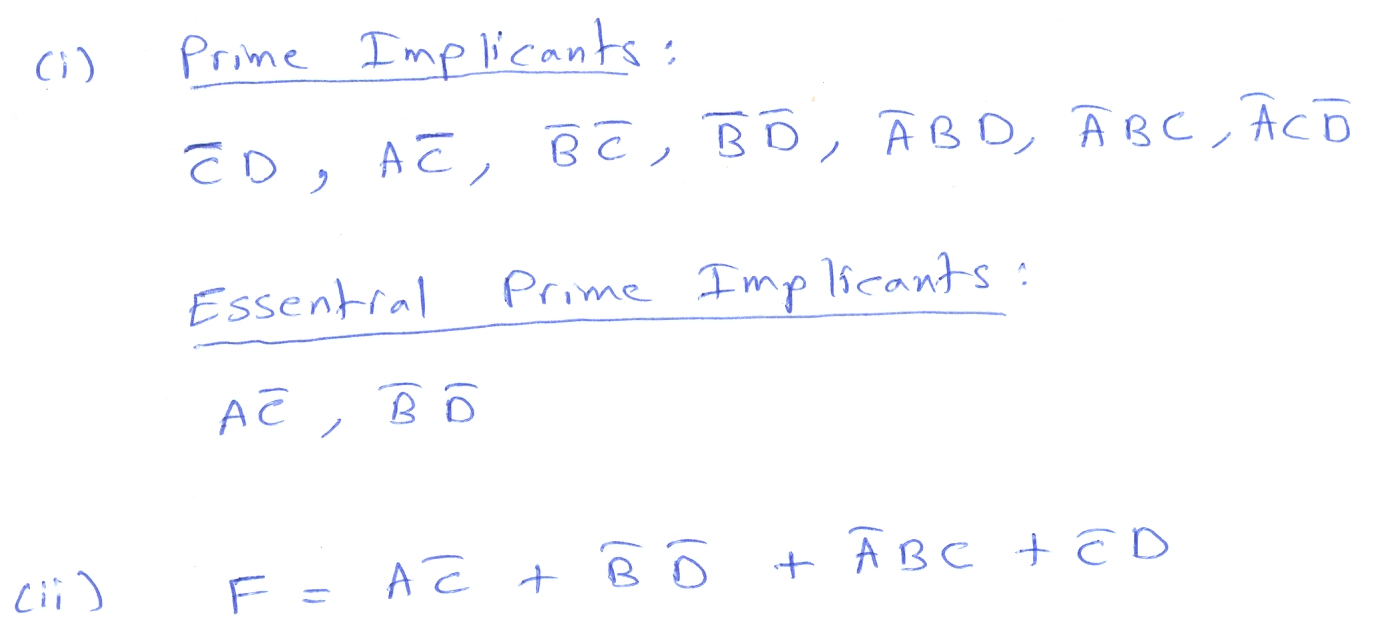 (i) Prime Implicants:
C̅D, AC̅, B̅C̅, B̅D̅, A̅BD, A̅BC, A̅CD̅
Essential Prime Implicants:
AC̅, B̅D̅
(ii) F = AC̅ + B̅D̅ + A̅BC + C̅D